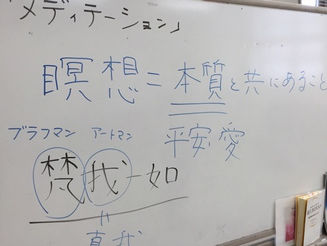 「メディテーション」
瞑想=本質と共にあること
平安 愛
ブラフマン アートマン
梵我一如
真我